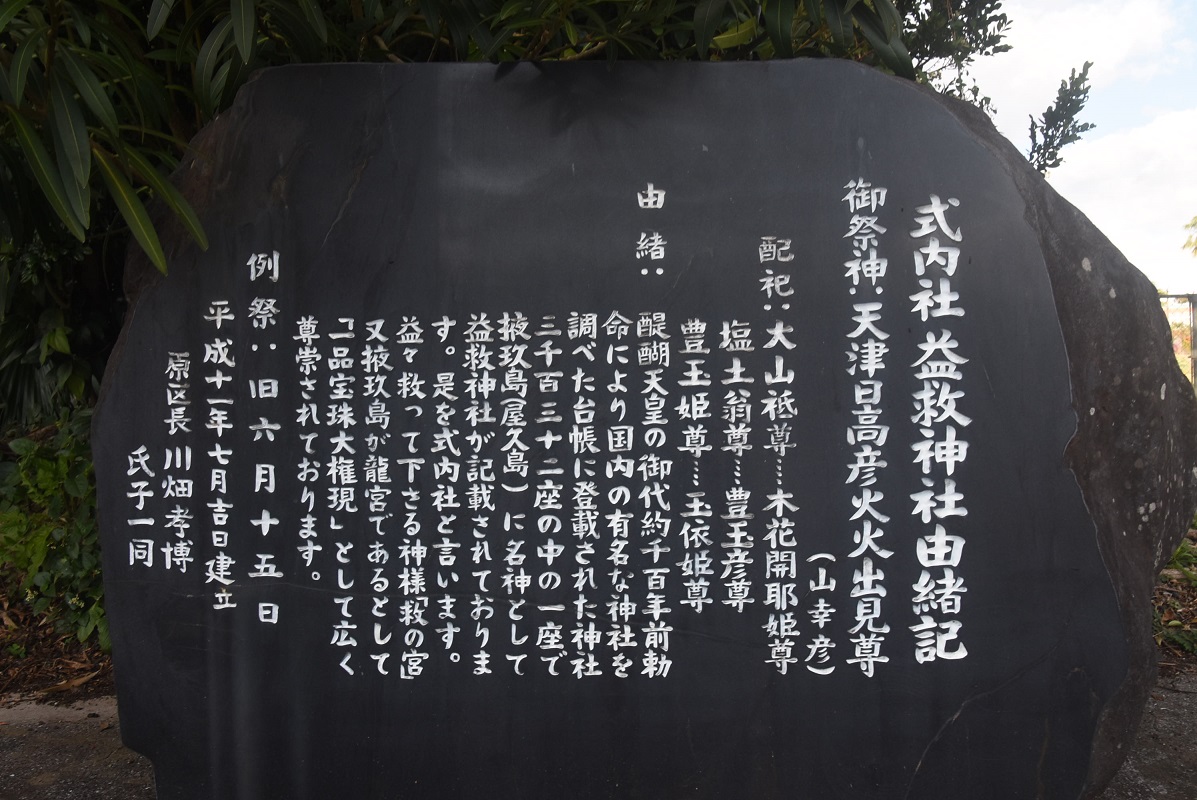 式内社 益救神社由緒記
御祭神:天津日高彦火火出見尊
(山幸彦)
配祀:大山祗尊……木花開耶姫尊
塩土翁尊……豊玉彦尊
豊玉姫尊……玉依姫尊
由緒:醍醐天皇の御代約千百年前勅
命により国内の有名な神社を
調べた台帳に登載された神社
三千百三十二座の中の一座で
掖玖島(屋久島)に名神として
益救神社が記載されておりま
す。是を式内社と言います。
益々救って下さる神様「救の宮」
又掖玖島が龍宮であるとして
「一品宝珠大権現」として広く
尊崇されております。
例祭:旧六月十五日
平成十一年七月吉日建立
原区長 川畑孝博
氏子一同